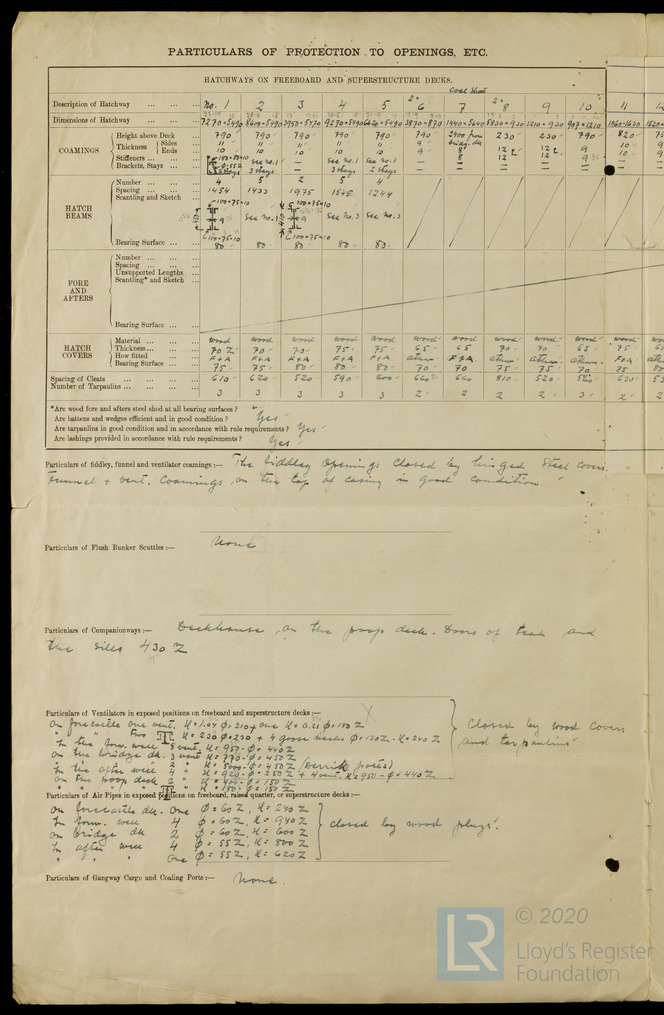 PARTICULARS OF PROTECTION TO OPENINGS, ETC.
HATCHWAYS ON FREEBOARD AND SUPERSTRUCTURE DECKS.
Coal Shoot
Description of Hatchway ... ... ... No. 1 2 3 4 5 6 7 8 9 10 11 12
Dimensions of Hatchway ... ... 7270×5490 8600×5490 3950×5490 9270×5490 6620×5490 3870×870 1440×5640 5830×930 1210×930 907×1210
COAMINGS
Height above Deck ... 790 790 790 790 790 790 2400 from bridge dk 230 230 790 820
Thickness Sides ... 11 11 11 11 11 9 8 12 12 9 10
Ends ... 10 10 10 10 10 9 8 12 12 9
Stiffeners ... ... ... See no. 1 — See no. 1 See no. 1 — — — — —
Brackets, Stays ... ... 3 stays — 3 stays 2 stays — — — — —
HATCH BEAMS
Number ... ... ... 4 5 2 5 4
Spacing ... ... ... 1454 1433 1975 1545 1244
Scantling and Sketch ... 100×75×10 See no. 3 100×75×10 See no. 3 See no. 3
100×75×10 100×75×10
Bearing Surface ... ... 80 80 80 80 80
FORE AND AFTERS
Number ... ... ...
Spacing ... ... ...
Unsupported Lengths ...
Scantling* and Sketch ...
Bearing Surface ... ...
HATCH COVERS
Material ... ... ... wood wood wood wood wood wood wood wood wood wood wood
Thickness ... ... ... 70 70 70 75 75 65 65 70 70 65 75
How fitted ... ... F+A F+A F+A F+A F+A athw. F+A athw. athw. athw. F+A
Bearing Surface ... ... 75 75 80 80 80 70 70 75 75 70 75
Spacing of Cleats ... ... ... ... 610 620 520 590 600 660 660 810 520 520 630
Number of Tarpaulins ... ... ... 3 3 3 3 3 2 2 2 2 3 2
*Are wood fore and afters steel shod at all bearing surfaces?
Are battens and wedges efficient and in good condition? Yes
Are tarpaulins in good condition and in accordance with rule requirements? Yes
Are lashings provided in accordance with rule requirements? Yes
Particulars of fiddley, funnel and ventilator coamings:— The fiddley openings closed by hinged steel covers.
Funnel + vent. Coamings on the top of casing in good condition
Particulars of Flush Bunker Scuttles:— None
Particulars of Companionways:— Deckhouse on the poop deck. Doors of teak and
the siles 430
Particulars of Ventilators in exposed positions on freeboard and superstructure decks:—
On forecastle one vent. H=1.04 Φ=210 + one H=0.21 Φ=180
" " two " H=230 Φ=230 + 4 goose necks Φ=130 - H=240
In the forw. well 8 vent. H=950 - Φ=440
On the bridge dk. 3 vent H=770 - Φ=450
" " 2 " H=5000 - Φ=450 (Derrick posts)
In the after well 4 " H=920 - Φ=250 + 4 vent. H=950 - Φ=440
On the poop deck 2 " H=400 - Φ=150
H=180 Φ=150
Closed by wood covers
and tarpaulins
Particulars of Air Pipes in exposed positions on freeboard, raised quarter, or superstructure decks:—
On forecastle dk. One Φ=60, H=240
In forw. well 4 Φ=60, H=940
On bridge dk 2 Φ=60, H=600
In after well 4 Φ=55, H=800
" " " One Φ=55, H=620
closed by wood plugs.
Particulars of Gangway Cargo and Coaling Ports:— None.
LR
© 2020
Lloyd's Register
Foundation